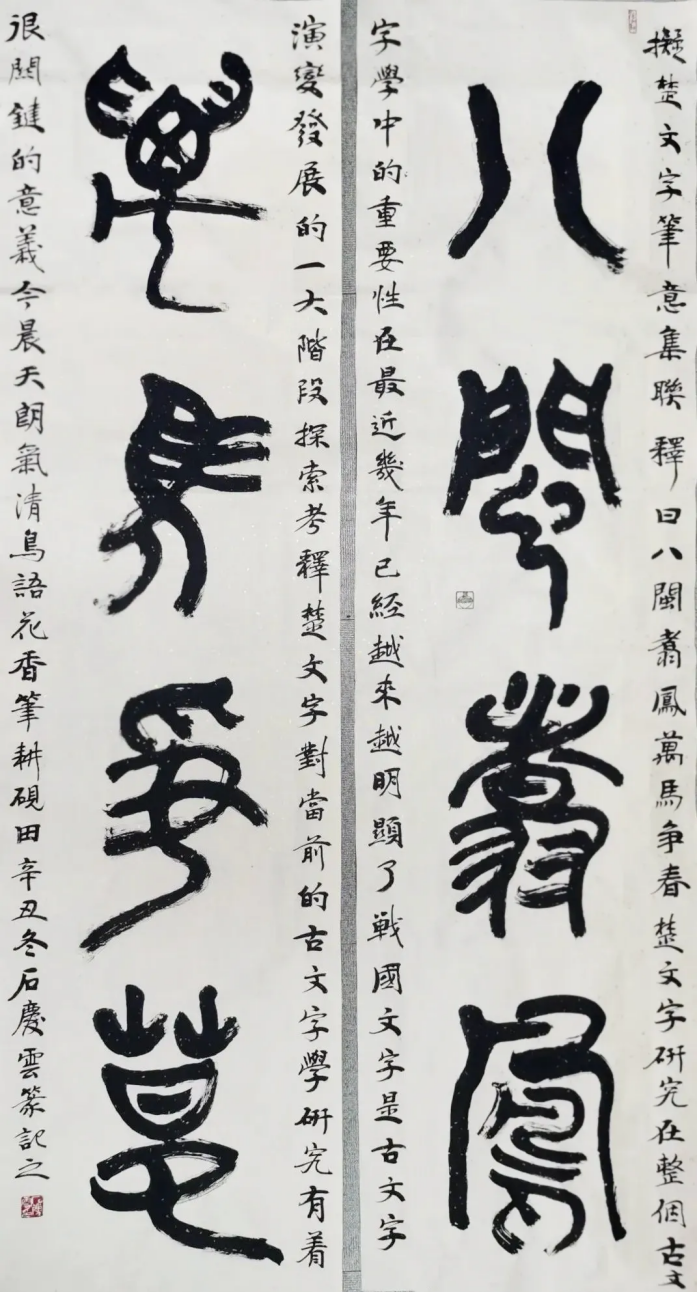 擬楚文字筆意集聯釋曰八閩翥鳳萬馬争春楚文字研究在整個古文
八閩翥鳳
字學中的重要性在最近幾年已經越來越明顯了戰國文字是古文字
演變發展的一大階段探索考釋楚文字對當前的古文字學研究有着
萬馬争春
很關鍵的意義今晨天朗氣清鳥語花香筆耕硯田辛丑冬石慶雲篆記之